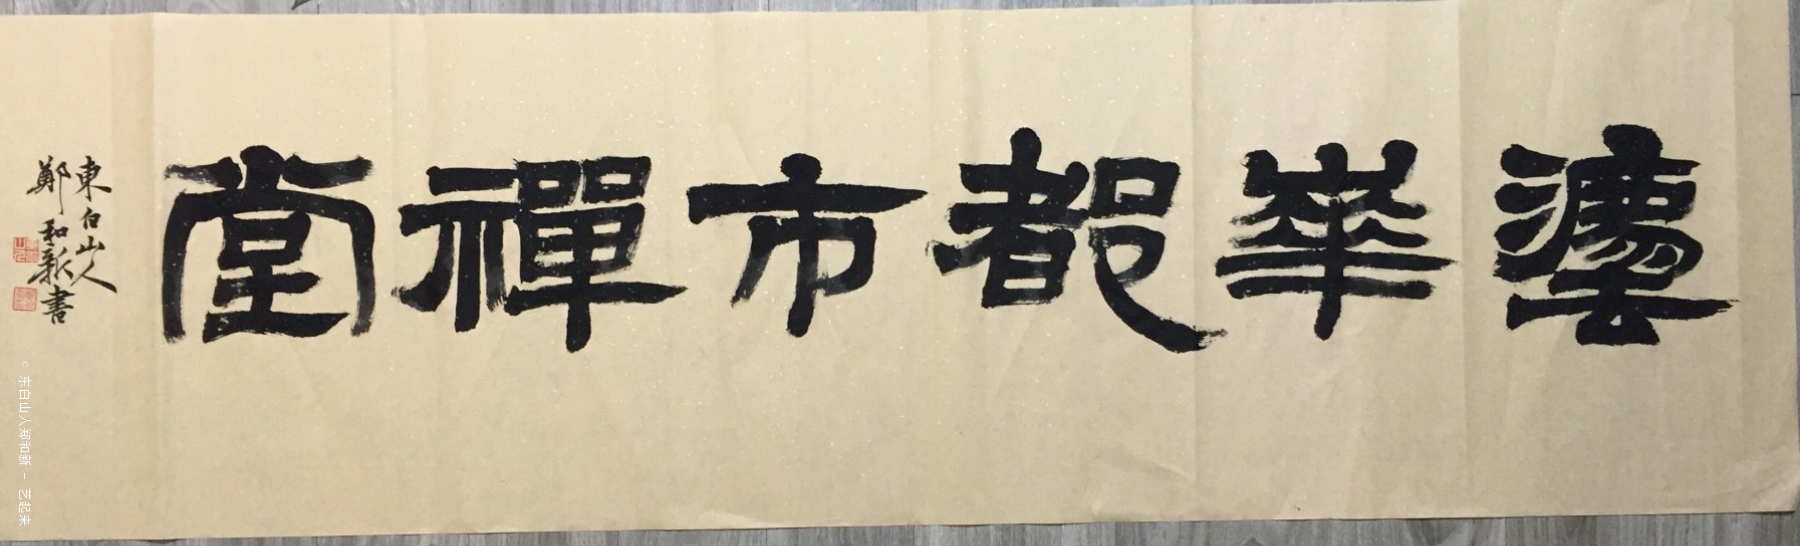 灋華都市禪堂
東白山人
鄭和新書
© 东白山人郑和新 - 艺起来